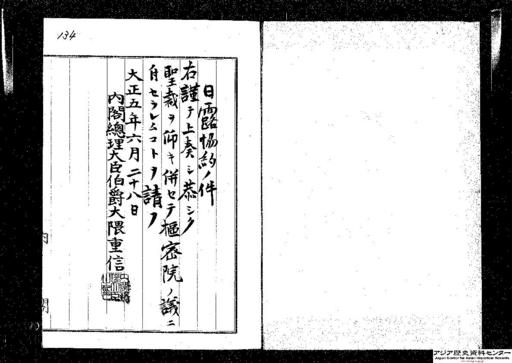 134
日露協約ノ件
右謹テ上奏シ恭シク
聖裁ヲ仰キ併セテ樞密院ノ議ニ
付セラレンコトヲ請フ
大正五年六月二十八日
内閣總理大臣伯爵大隈重信
内閣
アジア歴史資料センター
Japan Center for Asian Historical Records